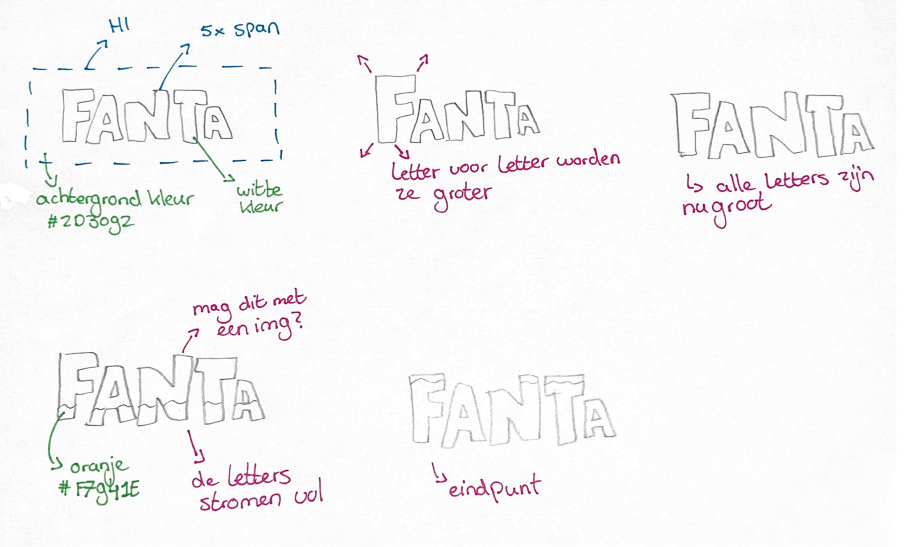 H1
5x span
FANTA
achtergrond kleur
#2D3092
witte
kleur
FANTA
letter voor letter worden
ze groter
FANTA
↳ alle letters zijn
nu groot
mag dit met
een img?
FANTA
oranje
#F7941E
de letters
stromen vol
FANTA
eindpunt